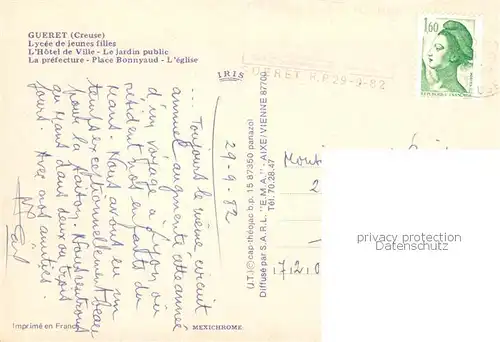 GUERET (Creuse)
Lycée de jeunes filles
L'Hôtel de Ville - Le jardin public
La préfecture - Place Bonnyaud - L'église
IRIS
GUERET R.P 29-9-82
1,60
29-9-82
... Toujours le même circuit
annuel augmenté cette année
d'un voyage à Lyon où
résident nos enfants du
Mans. Nous avons eu un
temps exceptionnellement beau
pour la saison. Nous rentrons
au Mans dans deux ou trois
jours. Avec nos amitiés.
(J.T.) ©cap-théojac b.p. 15 87350 panazol
Diffusé par S.A.R.L. "E.M.A." - AIXE/VIENNE 87700
Tél. 70.28.47
privacy protection
Datenschutz
Imprimé en France
MEXICHROME